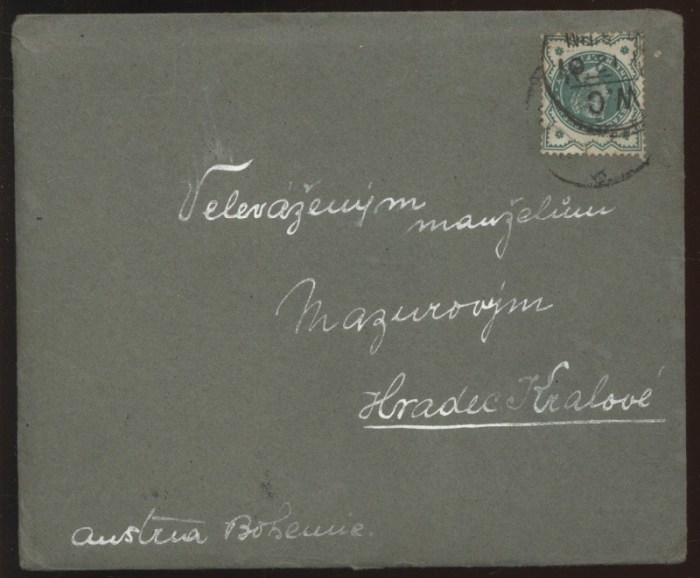 Veleváženým
manželům
Mazurovým
Hradec Kralové
austria Bohemie.